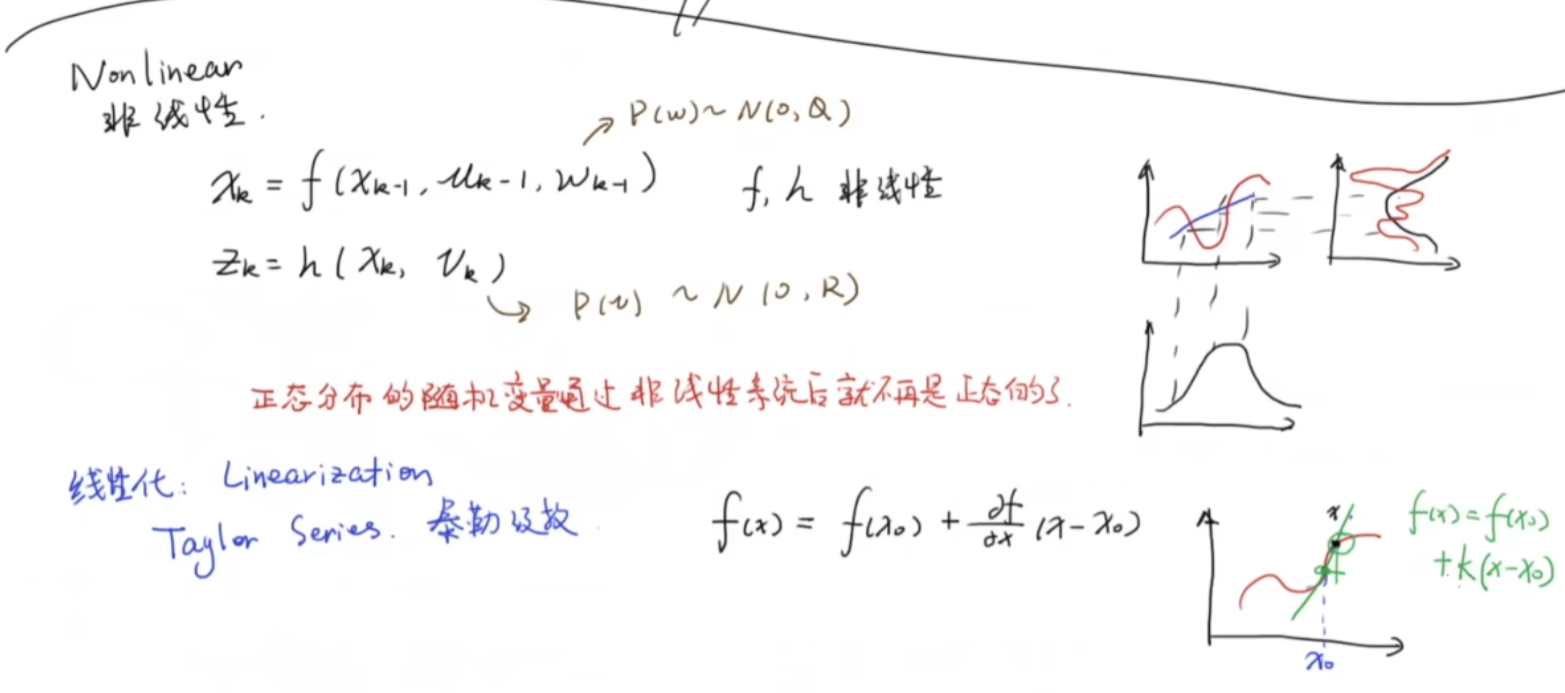 Nonlinear
非线性.
P(w)~N(0,Q)
x_k = f(x_{k-1}, u_{k-1}, w_{k-1})
f, h 非线性
z_k = h(x_k, v_k)
P(v) ~ N(0,R)
正态分布的随机变量通过非线性系统后就不再是正态的了.
线性化: Linearization
Taylor Series. 泰勒级数
f(x) = f(x_0) + ∂f/∂x (x-x_0)
x.
f(x)=f(x_0)
+k(x-x_0)
x_0